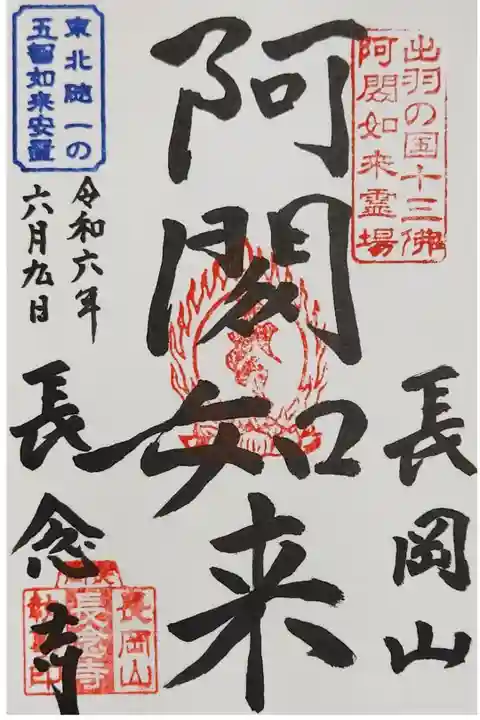 出羽の国十三佛
阿閦如来霊場
長岡山
阿閦如来
東北随一の
五智如来安置
令和六年
六月九日
長念寺
長岡山
長念寺